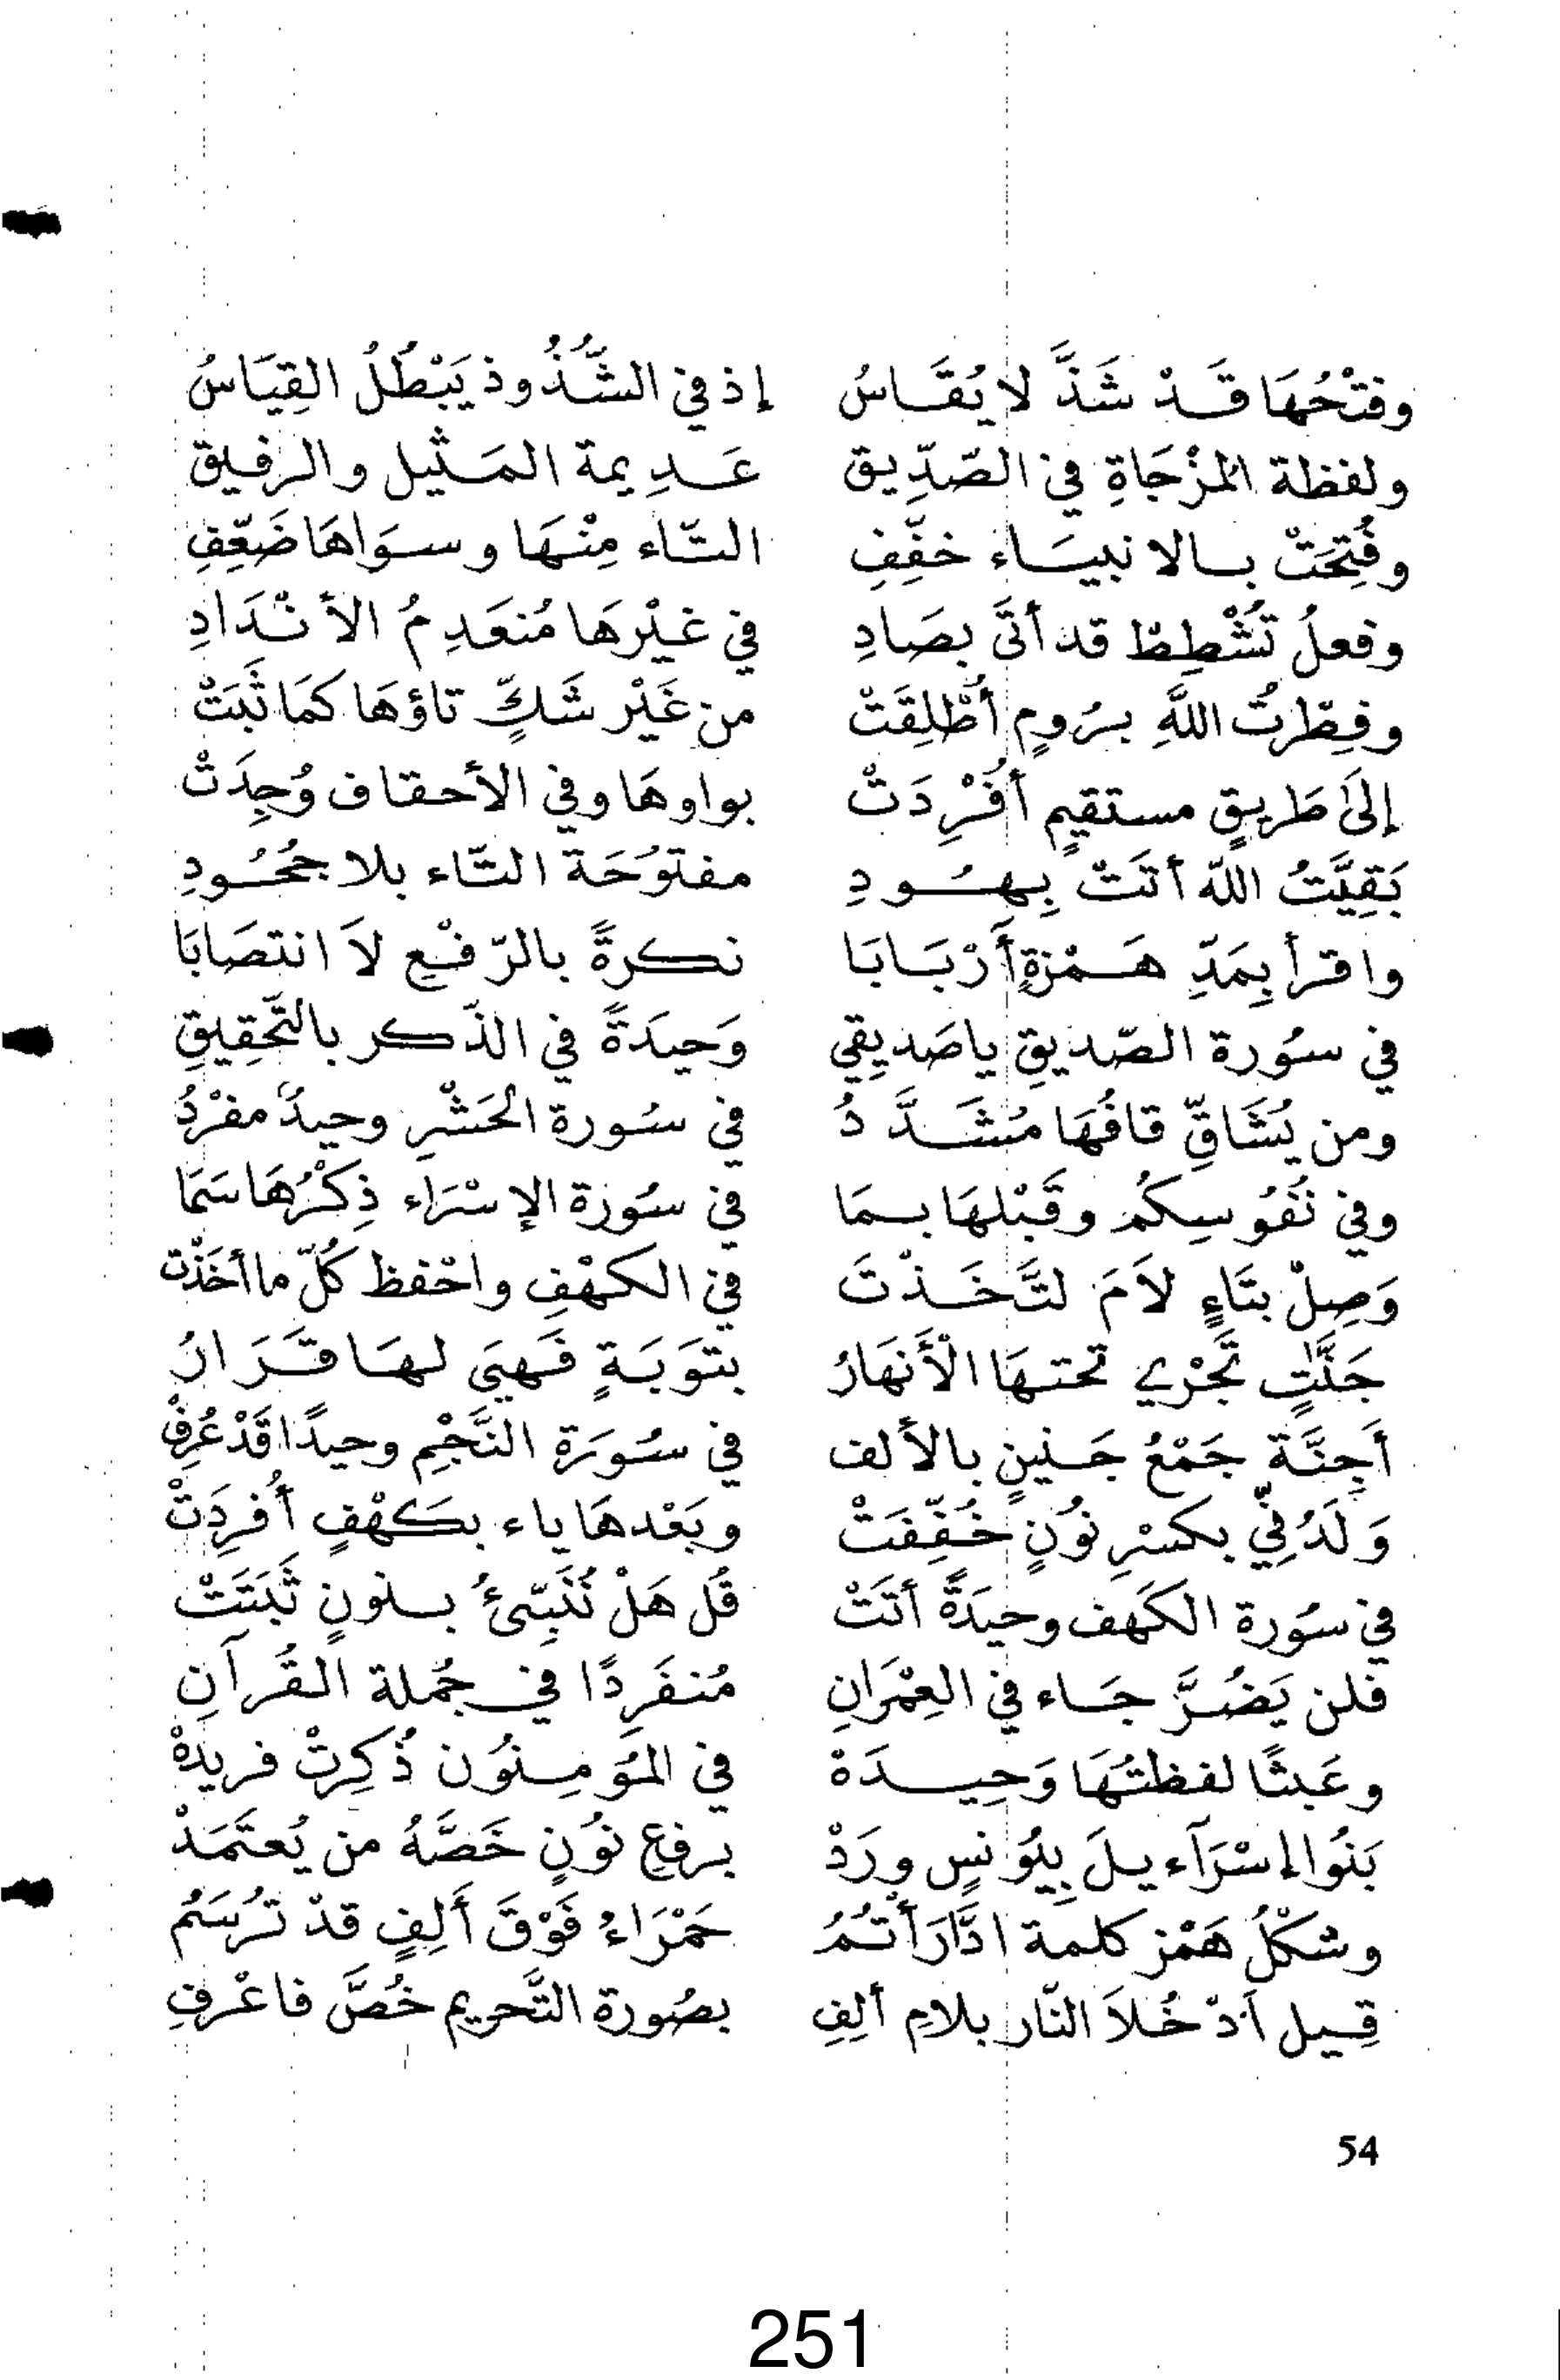 وفتْحُهَا قَدْ شَذَّ لا يُقَاسُ إذ في الشُّذُوذ يَبْطُلُ القِيَاسُ
ولفظة المزْجَاةِ في الصّدِّيق عَدِيمة المَثيل والرفيق
وفُتِحَتْ بالانبيَاء خفِّفِ التّاء مِنْهَا وسوَاهَا ضَعِّفِ
وفعلُ تُشْطِطْ قد أتَى بصَادِ في غيْرهَا مُنعَدِمُ الأنْدَادِ
وفِطْرتُ اللَّهِ برُومٍ أُطْلِقَتْ من غَيْر شَكٍّ تاؤهَا كمَا ثَبَتْ
إلَى طَريقٍ مستقيمٍ أُفْرِدَتْ بواوهَا وفي الأحقاف وُجِدَتْ
بَقِيَّتُ اللّه أتَتْ بِهُودِ مفتوُحَة التّاء بلا جُحُودِ
واقرأ بِمَدِّ هَمْزةٍ أَرْبَابَا نكرةً بالرّفْعِ لاَ انتصَابَا
في سُورة الصّديقِ ياصَديِقِي وَحيدَةً في الذّكر بالتَّحقِيقِ
ومن يُشَاقِّ قافُهَا مُشَدَّدُ في سُورة الحَشْرِ وحيدٌ مفْرَدُ
وفي نُفُوسِكُم وقَبْلهَا بمَا في سُورَة الإسْرَاء ذِكْرُهَا سَمَا
وَصِلْ بتَاءٍ لاَمَ لتَّخَذْتَ في الكهْفِ واحْفظ كُلّ ما أخَذْتَ
جَنَّٰتٍ تَجْرِي تحتهَا الْأَنهَارُ بتوَبَةٍ فَهيَ لهَا قَرَارُ
أَجِنَّة جَمْعُ جَنينٍ بالألف في سُورَة النَّجْمِ وحيدًا قَدْ عُرِفْ
وَلَدُنِّي بكسْرِ نوُنٍ خُفِّفَتْ وبَعْدهَا ياء بكَهْفٍ أُفرِدَتْ
في سُورة الكَهَف وحيَدَةً أتَتْ قُل هَلْ نُنَبِّئُ بنونٍ ثَبَتَتْ
فلن يَضُرَّ جَاء في العِمْرَانِ مُنفَرِدًا في جُملة القُرآنِ
وعَبثًا لفظتُهَا وَحِيدَة في المُؤمِنوُن ذُكِرتْ فريدهْ
بَنُوا إسْرَآءيلَ بِيُونسٍ ورَدْ برفعِ نوُنٍ خَصَّهُ من يُعتَمَدْ
وشكْلُ هَمْز كلمة ادَّارَأْتُمُ حَمْرَاءُ فَوْقَ أَلِفٍ قدْ تُرسَمُ
قِيل اَدْخُلاَ النّار بلامِ ألِفِ بصُورة التَّحريم خُصَّ فاعْرفِ
54
251